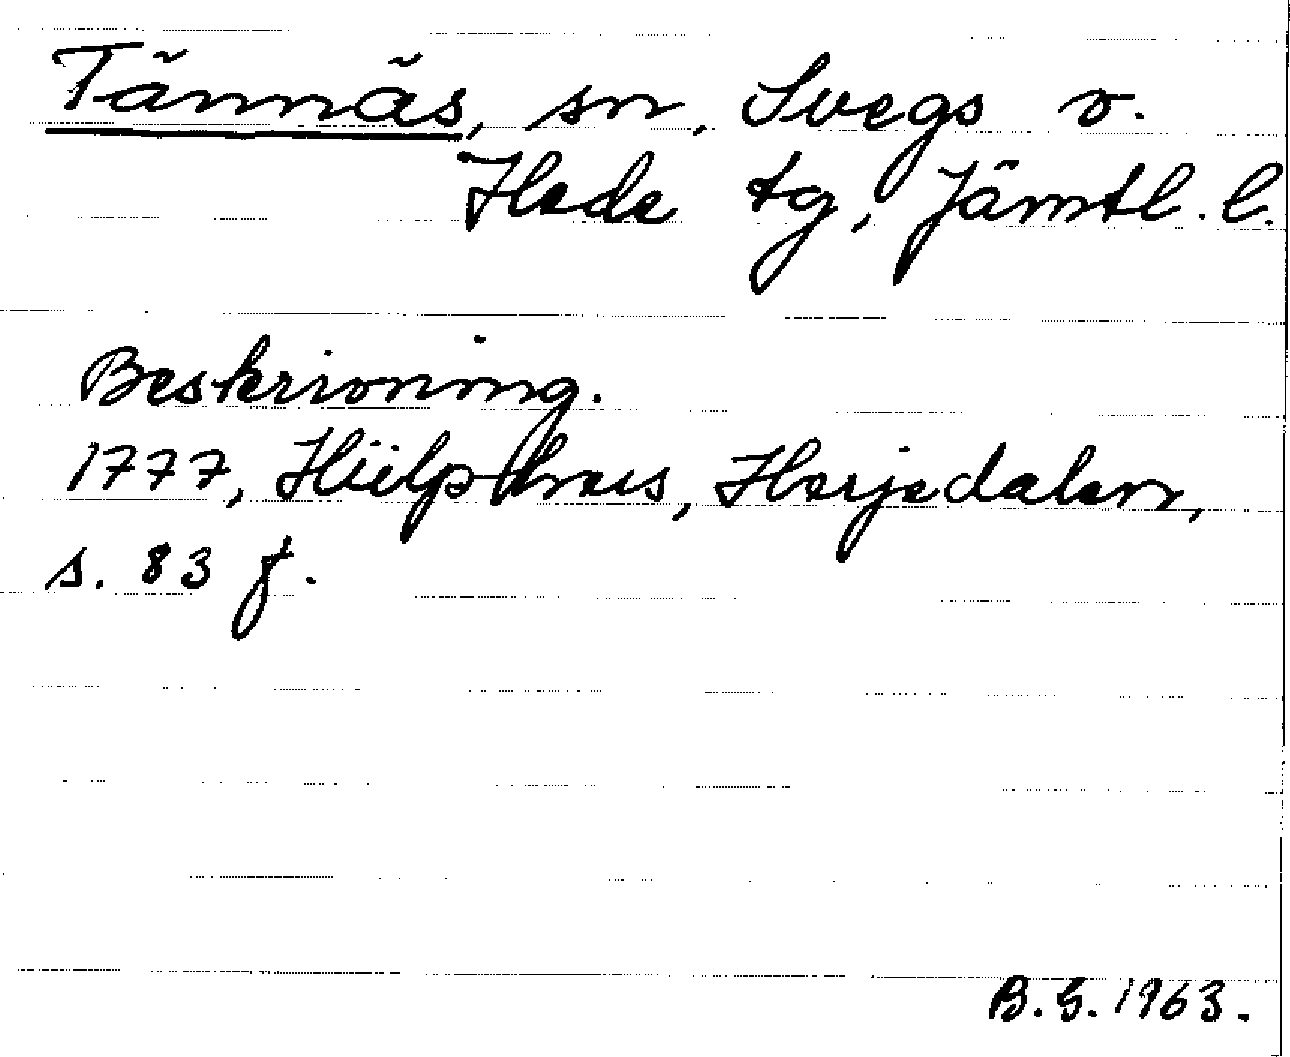 Tännäs, sn, Svegs o.
Hede tg, Jämtl. l.
Beskrivning.
1777, Hülphers, Herjedalen,
s. 83 f.
B.G. 1963.